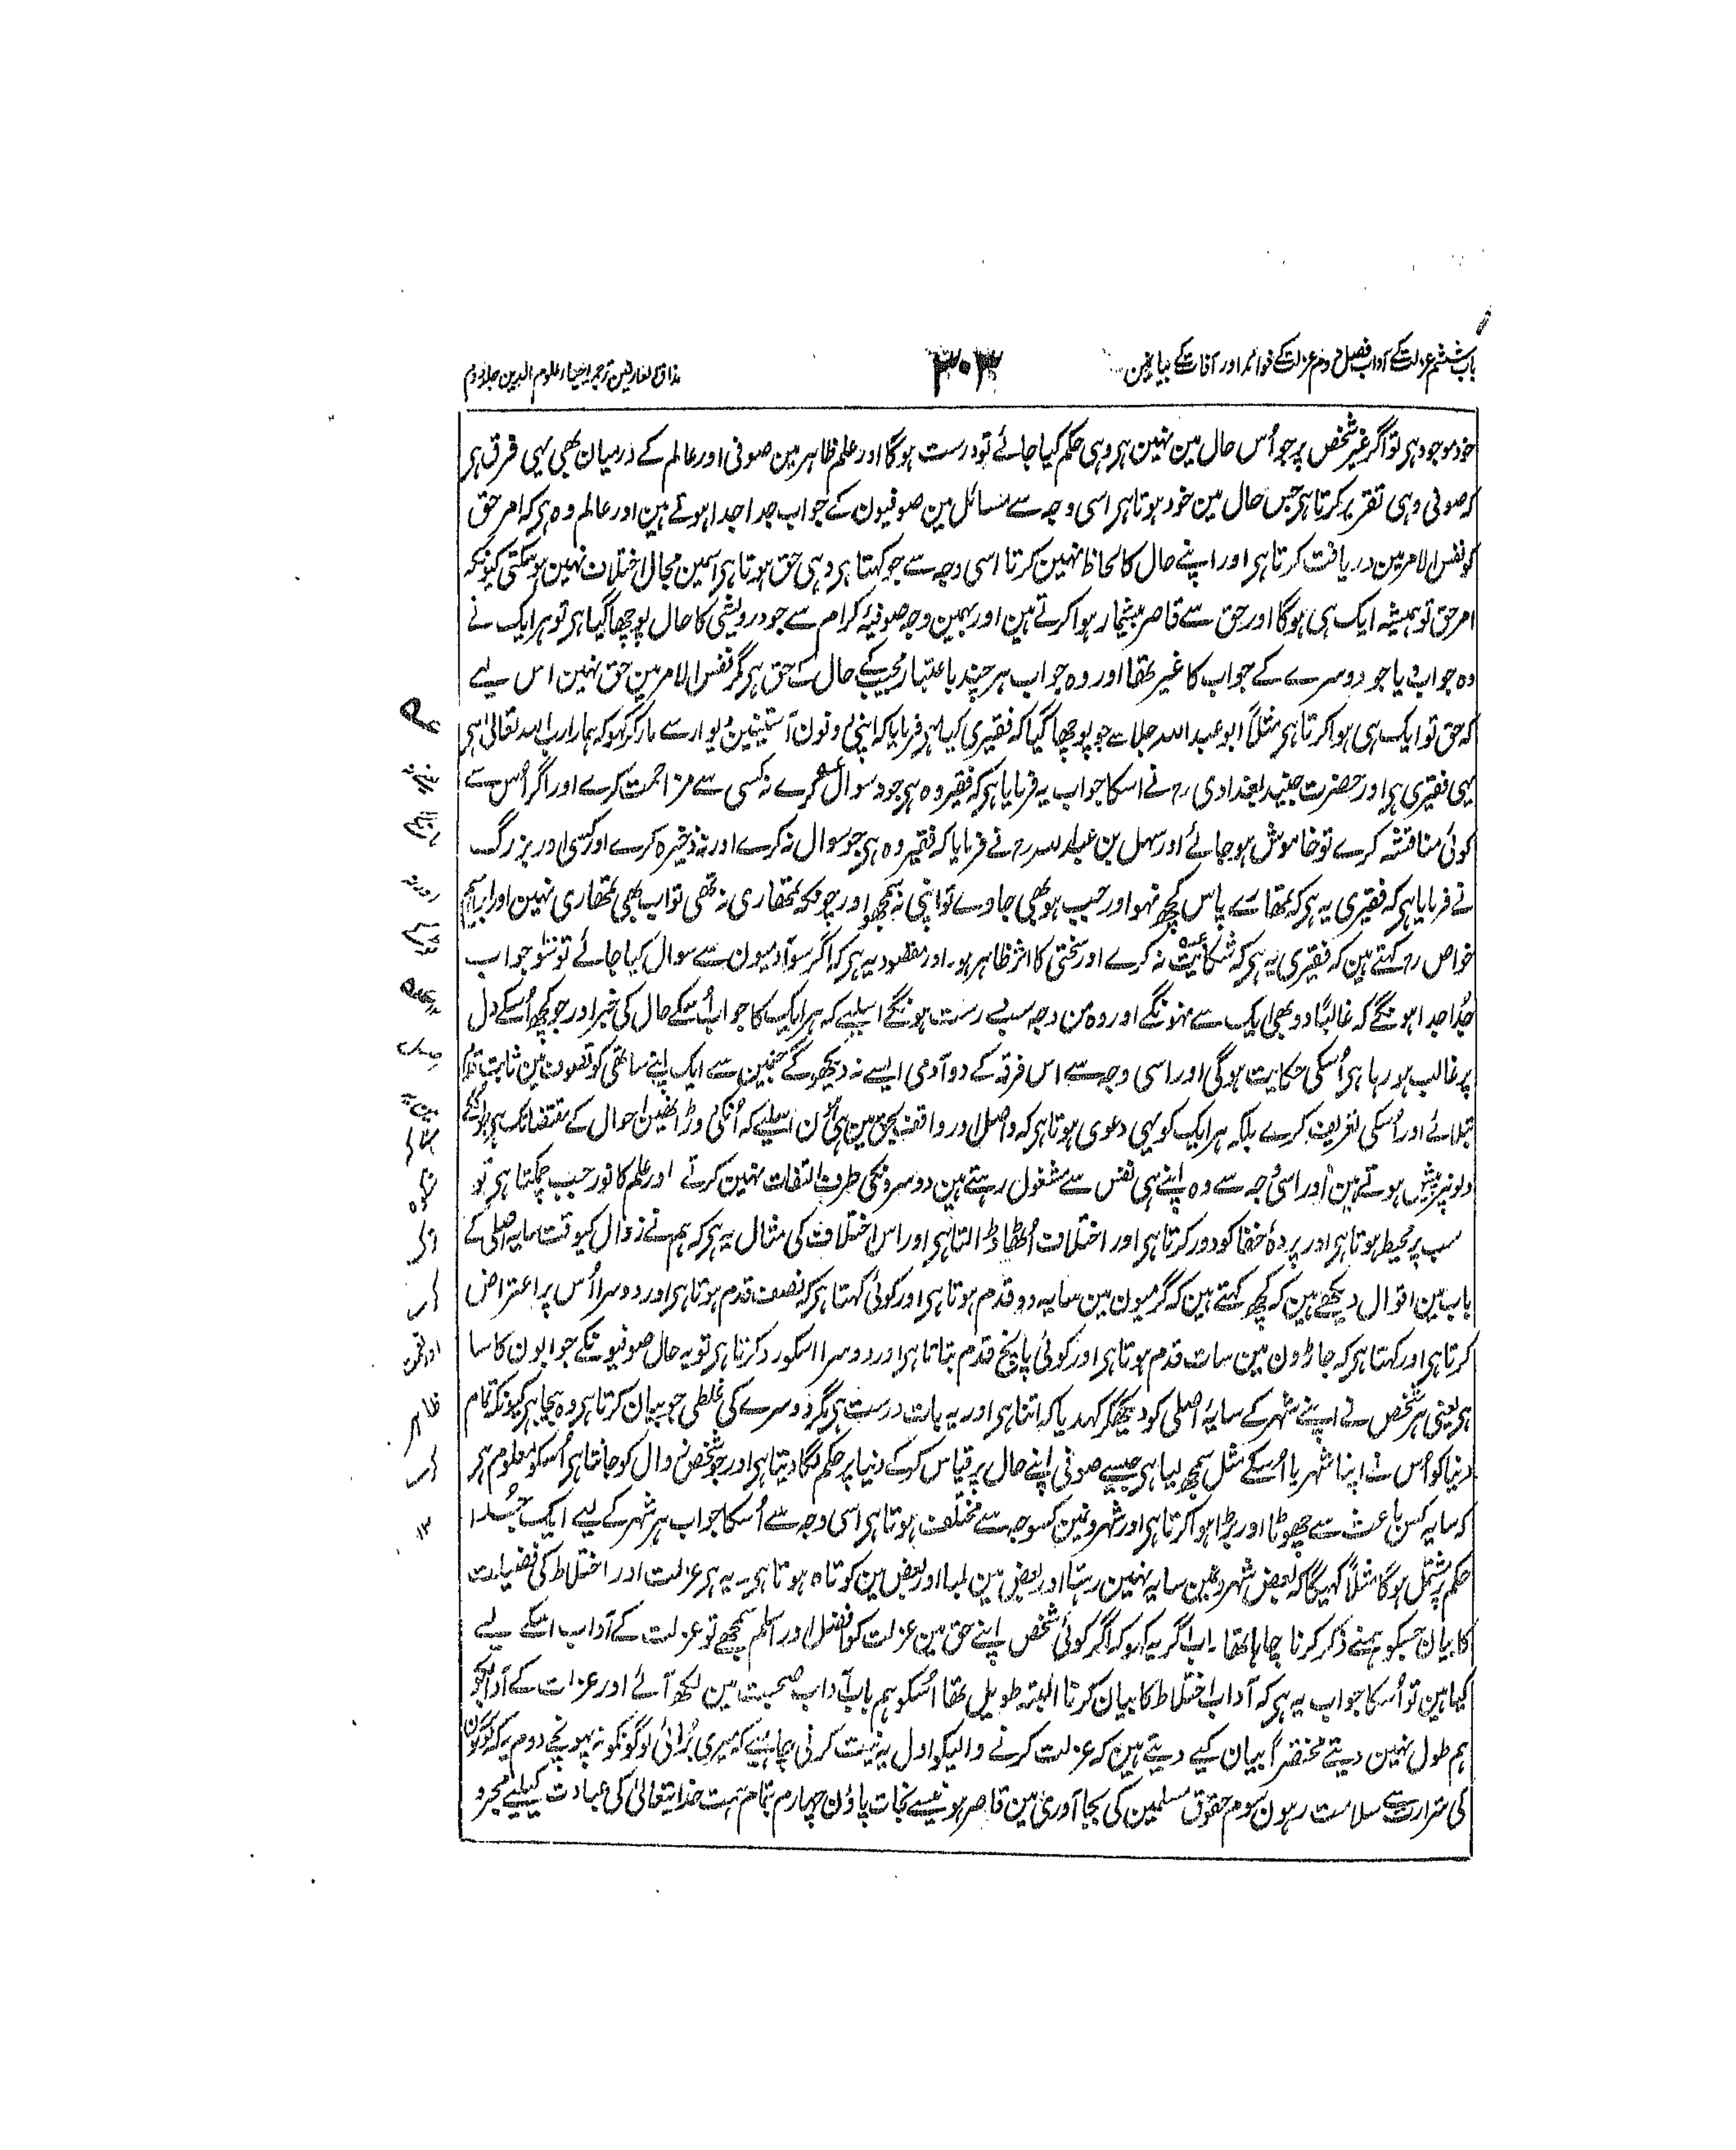 باب ششم عزلت کے آداب فصل دوم عزلت کے فوائد اور آفات کے بیان مین
۳۰۳
مذاق العارفین ترجمہ احیاء علوم الدین جلد دوم
خود موجود ہی تو اگر غیر شخص پر جو اُس حال مین نہین ہی وہی حکم کیا جائے تو درست ہوگا اور علم ظاہر مین صوفی اور عالم کے درمیان بھی یہی فرق ہی
کہ صوفی وہی تقریر کرتا ہی جس حال مین خود ہوتا ہی اسی وجہ سے مسائل مین صوفیون کے جواب جدا جدا ہوتے ہین اور عالم وہ ہی کہ امر حق
کو نفس الامر مین دریافت کرتا ہی اور اپنے حال کا لحاظ نہین کرتا اسی وجہ سے جو کہتا ہی وہی حق ہوتا ہی اسمین مجال اختلاف نہین ہوسکتی کیونکہ
امر حق تو ہمیشہ ایک ہی ہوگا اور حق سے قاصر بیشمار ہوا کرتے ہین اور بہمین وجہ صوفیۂ کرام سے جو درویشی کا حال پوچھا گیا ہی تو ہر ایک نے
وہ جواب دیا جو دوسرے کے جواب کا غیر تھا اور وہ جواب ہر چند باعتبار مجیب کے حال کے حق ہی مگر نفس الامر مین حق نہین اس لیے
کہ حق تو ایک ہی ہوا کرتا ہی مثلاً ابو عبد اللہ جلا سے جو پوچھا گیا کہ فقیری کیا ہی فرمایا کہ اپنی دونون آستینین دیوار سے مار کر کہو کہ ہمارا رب اللہ تعالیٰ ہی
یہی فقیری ہی اور حضرت جنید بغدادی رح نے اسکا جواب یہ فرمایا ہی کہ فقیر وہ ہی جو نہ سوال کرے نہ کسی سے مزاحمت کرے اور اگر اُس سے
کوئی مناقشہ کرے تو خاموش ہو جائے اور سہل بن عبد اللہ رح نے فرمایا کہ فقیر وہ ہی جو سوال نہ کرے اور نہ ذخیرہ کرے اور کسی اور بزرگ
نے فرمایا ہی کہ فقیری یہ ہی کہ تمھارے پاس کچھ نہو اور جب ہو بھی جاوے تو اپنی نہ سمجھو اور چونکہ تمھاری نہ تھی تو اب بھی تمھاری نہین اور ابراہیم
خواص رح کہتے ہین کہ فقیری یہ ہی کہ شکایت نہ کرے اور سختی کا اثر ظاہر ہو۔ اور مقصود یہ ہی کہ اگر سو آدمیون سے سوال کیا جائے تو سو جواب
جُدا جدا ہونگے کہ غالباً دو بھی ایک سے نہونگے اور وہ من وجہ سب درست ہونگے اسلیے کہ ہر ایک کا جواب اُسکے حال کی خبر اور جو کچھ اُسکے دل
پر غالب ہو رہا ہی اُسکی حکایت ہوگی اور اسی وجہ سے اس فرقہ کے دو آدمی ایسے نہ دیکھوگے جنمین سے ایک اپنے ساتھی کو تصوف مین ثابت قدم
بتلائے اور اُسکی تعریف کرے بلکہ ہر ایک کو یہی دعوی ہوتا ہی کہ واصل اور واقف بحق مین ہی ہون اسلیے کہ اُنکی دوڑ انھین احوال کے مقتضا تک ہی جو اُنکے
دلونپر پیش ہوتے ہین اور اسی وجہ سے وہ اپنے ہی نفس سے مشغول رہتے ہین دوسرونکی طرف التفات نہین کرتے اور علم کا نور جب چمکتا ہی تو
سب پر محیط ہوتا ہی اور پردۂ خفا کو دور کرتا ہی اور اختلاف اُٹھا ڈالتا ہی اور اس اختلاف کی مثال یہ ہی کہ ہم نے زوال کیوقت سایہ اصلی کے
باب مین اقوال دیکھے ہین کہ کچھ کہتے ہین کہ گرمیون مین سایہ دو قدم ہوتا ہی اور کوئی کہتا ہی کہ نصف قدم ہوتا ہی اور دوسرا اُس پر اعتراض
کرتا ہی اور کہتا ہی کہ جاڑون مین سات قدم ہوتا ہی اور کوئی پانچ قدم بتاتا ہی اور دوسرا اسکو رد کرتا ہی تو یہ حال صوفیونکے جوابون کا سا
ہی یعنی ہر شخص نے اپنے شہر کے سایۂ اصلی کو دیکھکر کہدیا کہ اتنا ہی اور یہ بات درست ہی مگر دوسرے کی غلطی جو بیان کرتا ہی وہ بیجا ہی کیونکہ تمام
دنیا کو اُس نے اپنا شہر یا اُسکے مثل سمجھ لیا ہی جیسے صوفی اپنے حال پر قیاس کرکے دنیا پر حکم لگا دیتا ہی اور جو شخص زوال کو جانتا ہی اُسکو معلوم ہی
کہ سایہ کس باعث سے چھوٹا اور بڑا ہوا کرتا ہی اور شہرونمین کسوجہ سے مختلف ہوتا ہی اسی وجہ سے اُسکا جواب ہر شہر کے لیے ایک جُدا
حکم پر مشتمل ہوگا مثلاً کہیگا کہ بعض شہرونمین سایہ نہین رہتا اور بعض مین لمبا اور بعض مین کوتاہ ہوتا ہی۔ یہ ہی عزلت اور اختلاط کی فضیلت
کا بیان جسکو ہمنے ذکر کرنا چاہا تھا۔ اب اگر یہ کہو کہ اگر کوئی شخص اپنے حق مین عزلت کو افضل اور اسلم سمجھے تو عزلت کے آداب اسکے لیے
کیا ہین تو اُسکا جواب یہ ہی کہ آداب اختلاط کا بیان کرنا البتہ طویل تھا اُسکو ہم باب آداب صحبت مین لکھ آئے اور عزلت کے آداب کو
ہم طول نہین دیتے مختصراً بیان کیے دیتے ہین کہ عزلت کرنے والیکو اول یہ نیت کرنی چاہیے کہ میری بُرائی لوگونکو نہ پہونچے دوم یہ کہ لوگون
کی شرارت سے سلامت رہون سوم حقوق مسلمین کی بجا آوری مین قاصر ہونیسے نجات پاؤن چہارم بتمام ہمت خدا تعالیٰ کی عبادت کیلیے مجرد